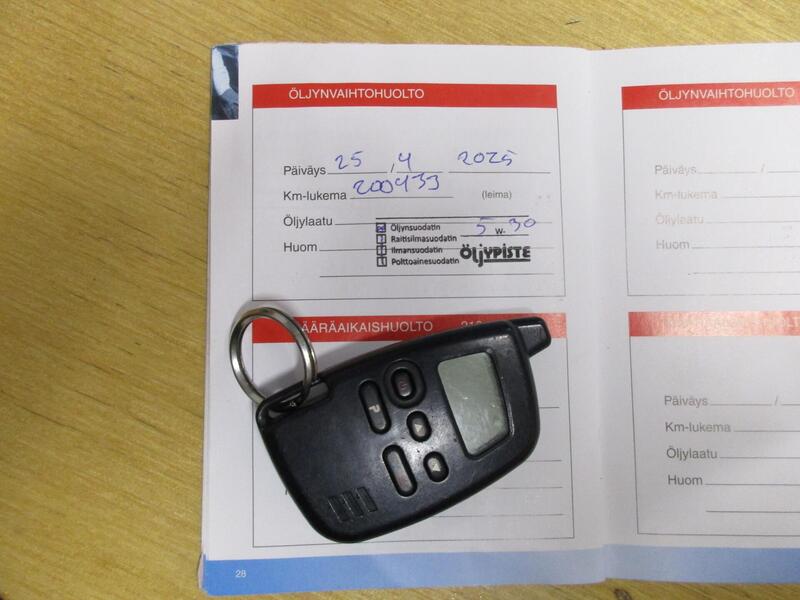 ÖLJYNVAIHTOHUOLTO
Päiväys 25 / 4 2025
Km-lukema 200433
(leima)
Öljylaatu
Huom
Öljynsuodatin
Raitisilmasuodatin
Ilmansuodatin
Polttoainesuodatin
5 W- 30
ÖLJYPISTE
ÄÄRÄAIKAISHUOLTO
P
28
ÖLJYNVAIHTOHUOLTO
Päiväys /
Km-lukema
Öljylaatu
Huom
Päiväys /
Km-lukema
Öljylaatu
Huom